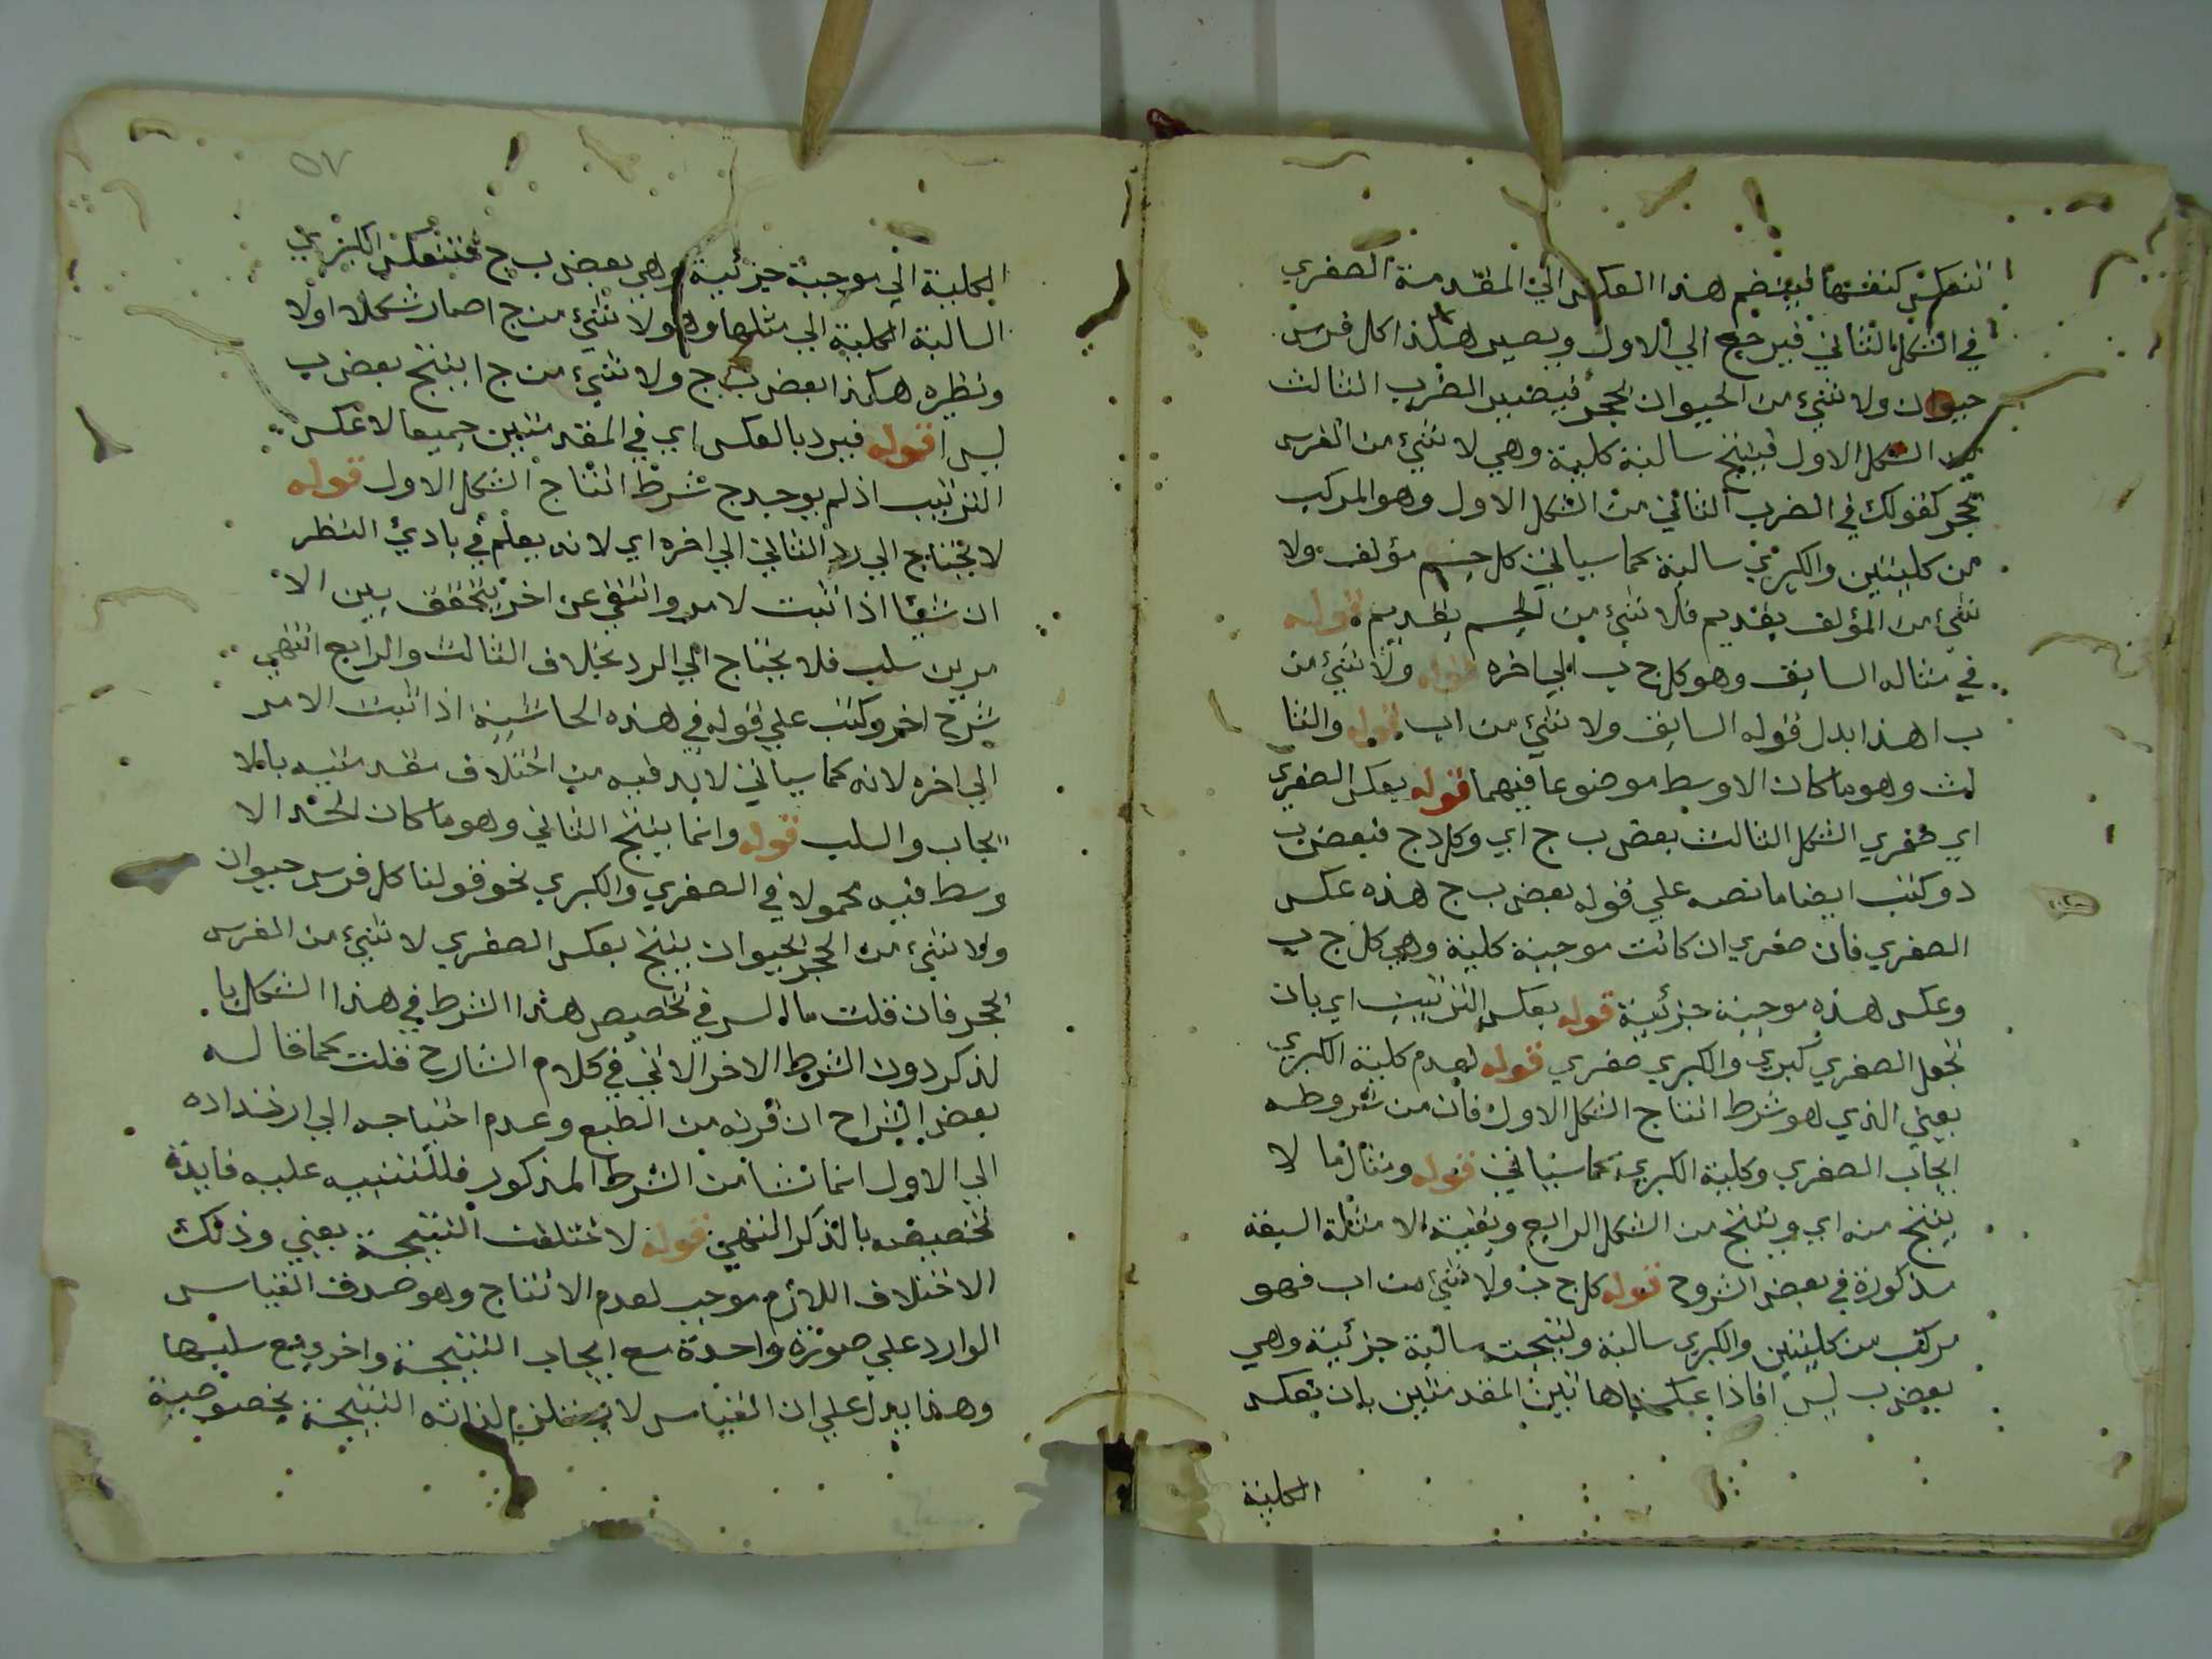 تنعكس كنفسها فينضم هذا العكس الي المقدمة الصغري
في الشكل الثاني فيرجع الي الاول ويصير هكذا كل فرس
حيوان ولا شيء من الحيوان بحجر فيصير الضرب الثالث
من الشكل الاول فينتج سالبة كلية وهي لا شيء من الفرس
بحجر كقولك في الضرب الثاني من الشكل الاول وهو المركب
من كليتين والكبري سالبة كما سياتي كل جسم مؤلف ولا
شيء من المؤلف بقديم فلا شيء من الجسم بقديم قوله
في مثاله السابق وهو كل ج ب الي اخره قوله ولا شيء من
ب ا هذا بدل قوله السابق ولا شيء من ا ب قوله والثا
لث وهو ما كان الاوسط موضوعا فيهما قوله بعكس الصغري
اي صغري الشكل الثالث بعض ب ج اي وكل د ج فبعض ب
د وكتب ايضا ما نصه علي قوله بعض ب ج هذه عكس
الصغري فان صغري ان كانت موجبة كلية وهي كل ج ب
وعكس هذه موجبة جزئية قوله بعكس الترتيب اي بان
تجعل الصغري كبري والكبري صغري قوله لعدم كلية الكبري
يعني الذي هو شرط انتاج الشكل الاول فان من شروطه
ايجاب الصغري وكلية الكبري كما سياتي قوله ومثال ما لا
ينتج منه اي وينتج من الشكل الرابع وبقية الامثلة السبعة
مذكورة في بعض الشروح قوله كل ج ب ولا شيء من ا ب فهو
مركب من كليتين والكبري سالبة ونتيجته سالبة جزئية وهي
بعض ب ليس ا فاذا عكسنا هاتين المقدمتين بان تعكس
الكلية
٥٧
الكلية الي موجبة جزئية وهي بعض ب ج فتنعكس الكبري
السالبة الكلية الي مثلها وهو ولا شيء من ج ا صار شكلا اولا
ونظيره هكذا بعض ب ج ولا شيء من ج ا ينتج بعض ب
ليس ا قوله فيرد بالعكس اي في المقدمتين جميعا لا عكس
الترتيب اذ لم يوجد ج شرط انتاج الشكل الاول قوله
لا يحتاج الي رد الثاني الي اخره اي لانه يعلم في بادئ النظر
ان شيئا اذا اثبت لامر وانتفي عن اخر يتحقق بين الا
مرين سلب فلا يحتاج الي الرد بخلاف الثالث والرابع انتهي
شرح اخر وكتب علي قوله في هذه الحاشية اذا اثبت الامر
الي اخره لانه كما سياتي لابد فيه من اختلاف مقدمتيه بالا
يجاب والسلب قوله وانما ينتج الثاني وهو ما كان الحد الا
وسط فيه محمولا في الصغري والكبري نحو قولنا كل فرس حيوان
ولا شيء من الحجر بحيوان ينتج بعكس الصغري لا شيء من الفرس
بحجر فان قلت ما السر في تخصيص هذا الشرط في هذا الشكل با
لذكر دون الشرط الاخر الاتي في كلام الشارح قلت كما قاله
بعض الشراح ان قربه من الطبع وعدم احتياجه الي ارتداده
الي الاول انما نشا من الشرط المذكور فللتنبيه عليه فايدة
تخصيصه بالذكر انتهي قوله لاختلفت النتيجة يعني وذلك
الاختلاف اللازم موجب لعدم الانتاج وهو صدق القياس
الوارد علي صورة واحدة مع ايجاب النتيجة واخري مع سلبها
وهذا يدل علي ان القياس لا يستلزم لذاته النتيجة بخصوصية